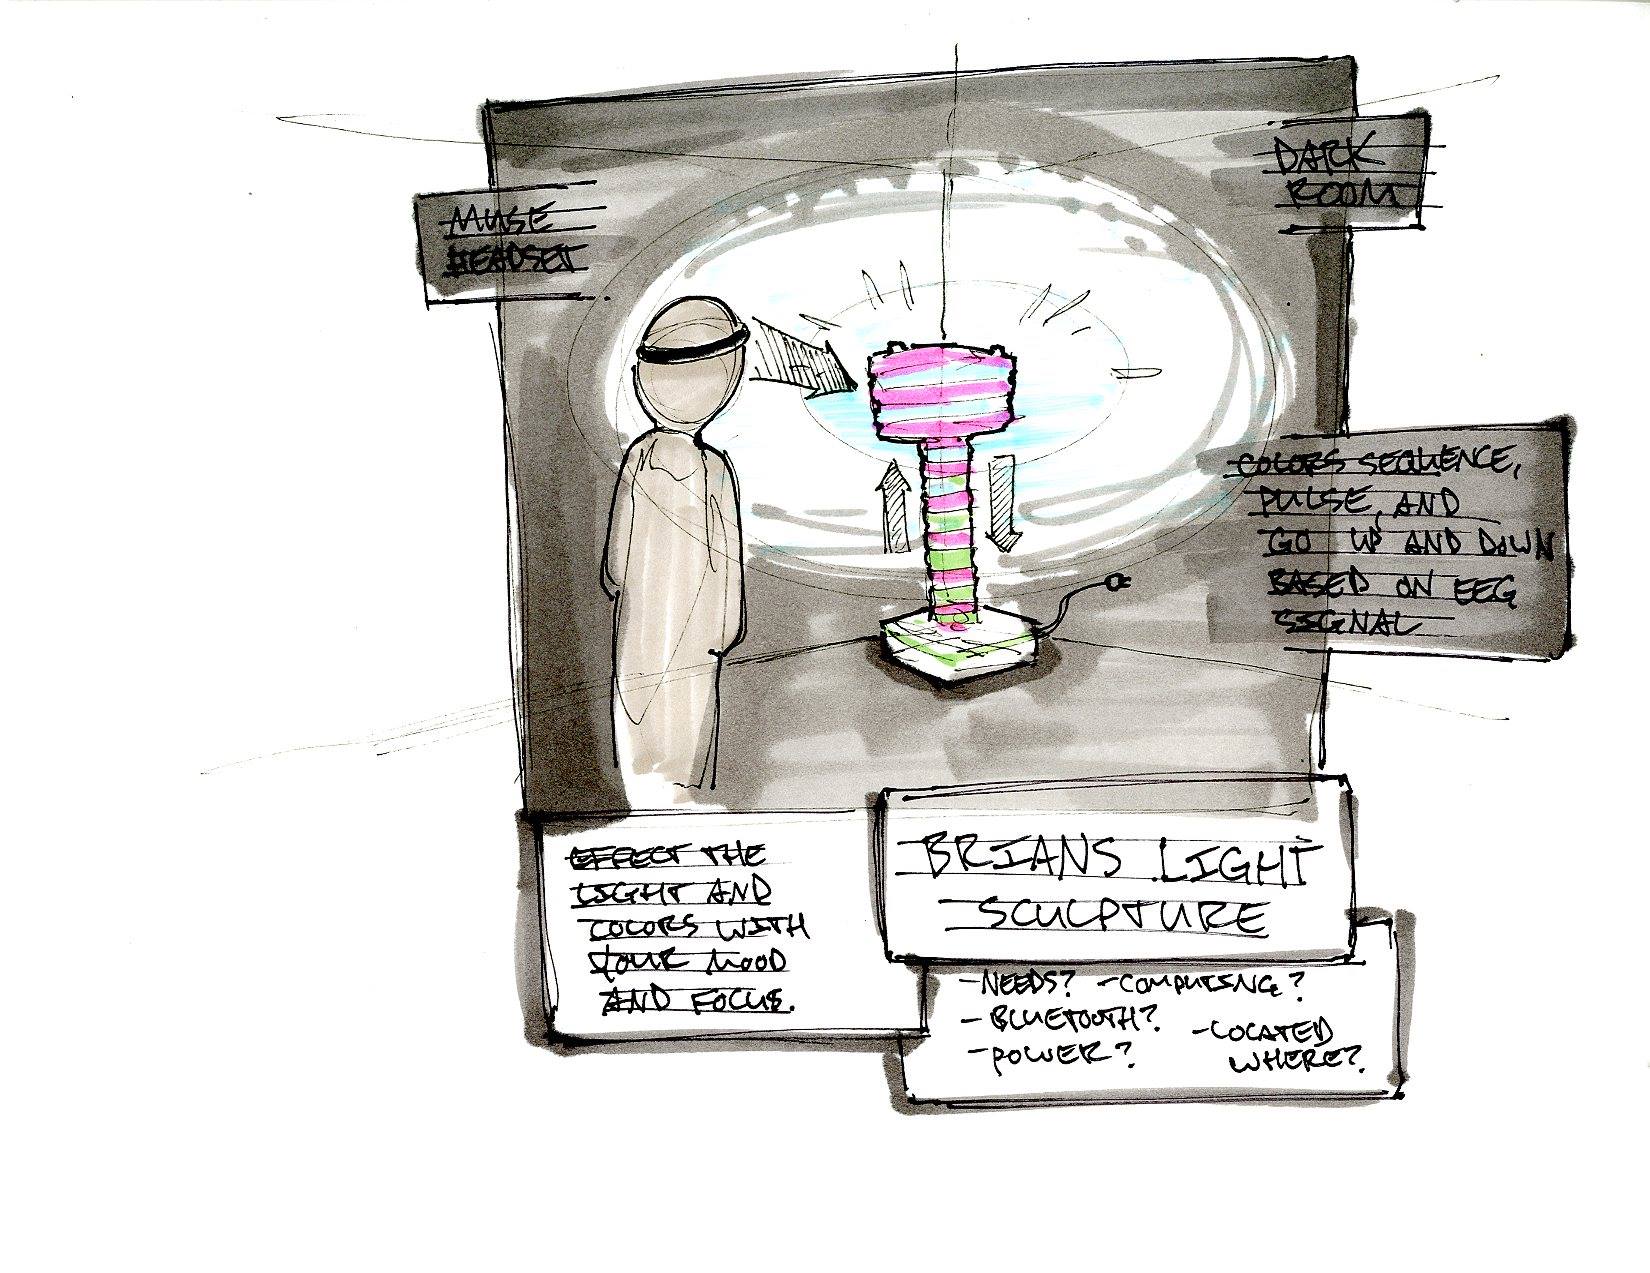 DARK
ROOM
MUSE
HEADSET
COLORS SEQUENCE,
PULSE, AND
GO UP AND DOWN
BASED ON EEG
SIGNAL
EFFECT THE
LIGHT AND
COLORS WITH
YOUR MOOD
AND FOCUS.
BRIANS LIGHT
SCULPTURE
-NEEDS? -COMPUTING?
-BLUETOOTH?
-POWER?
-LOCATED
WHERE?